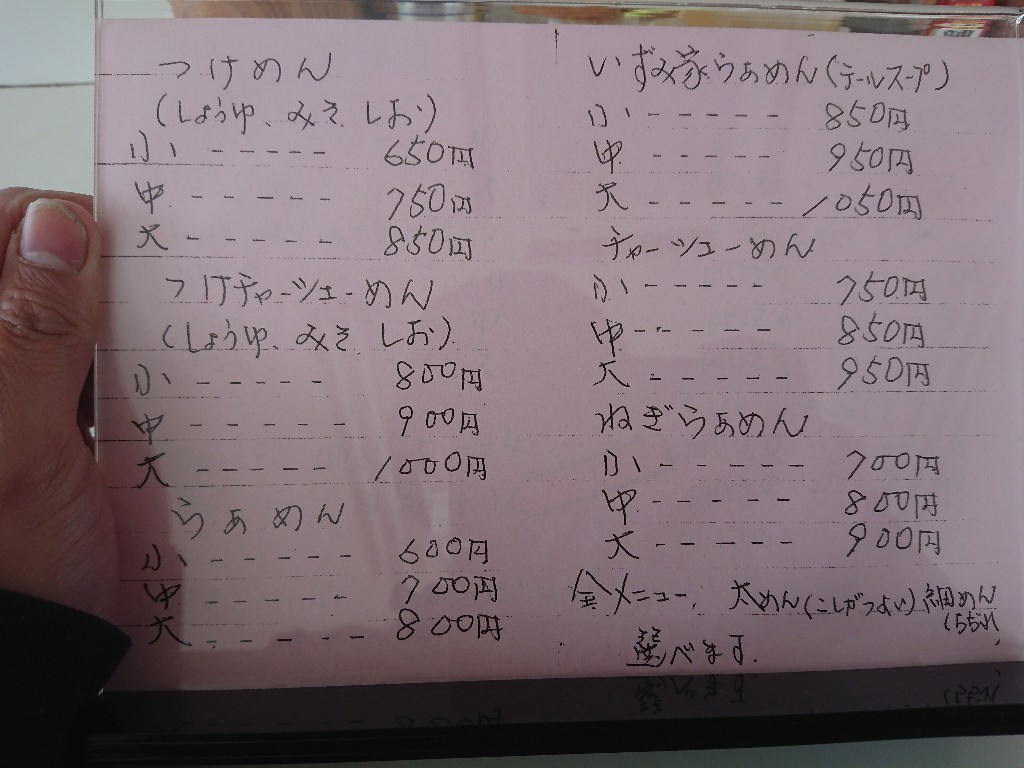 つけめん
(しょうゆ、みそ、しお)
小 ----- 650円
中 ----- 750円
大 ----- 850円
つけチャーシューめん
(しょうゆ、みそ、しお)
小 ----- 800円
中 ------ 900円
大 ----- 1000円
らぁめん
小 ------ 600円
中 ------ 700円
大 ------ 800円
いずみ家らぁめん(テールスープ)
小 ----- 850円
中 ----- 950円
大 ----- 1050円
チャーシューめん
小 ----- 750円
中 ----- 850円
大 ----- 950円
ねぎらぁめん
小 ----- 700円
中 ----- 800円
大 ----- 900円
全メニュー、太めん(こしがつよい)細めん
(ちぢれ
選べます。